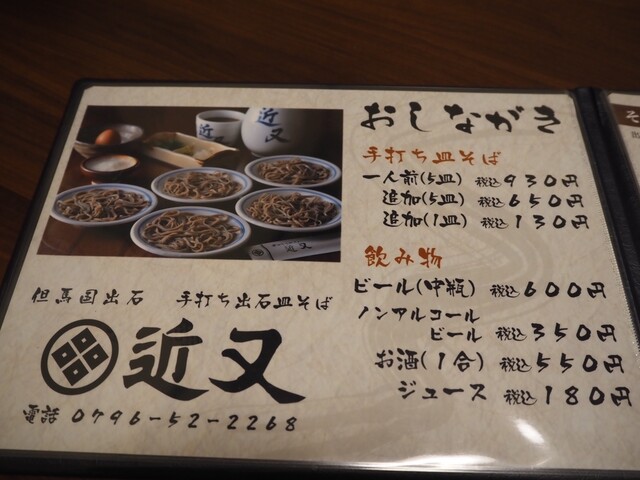 おしながき
手打ち皿そば
一人前(5皿) 税込 930円
追加(5皿) 税込 650円
追加(1皿) 税込 130円
飲み物
ビール(中瓶) 税込 600円
ノンアルコール
ビール 税込 350円
お酒(1合) 税込 550円
ジュース 税込 180円
近又
近又
近又
但馬国出石 手打ち出石皿そば
近又
電話 0796-52-2268
そ